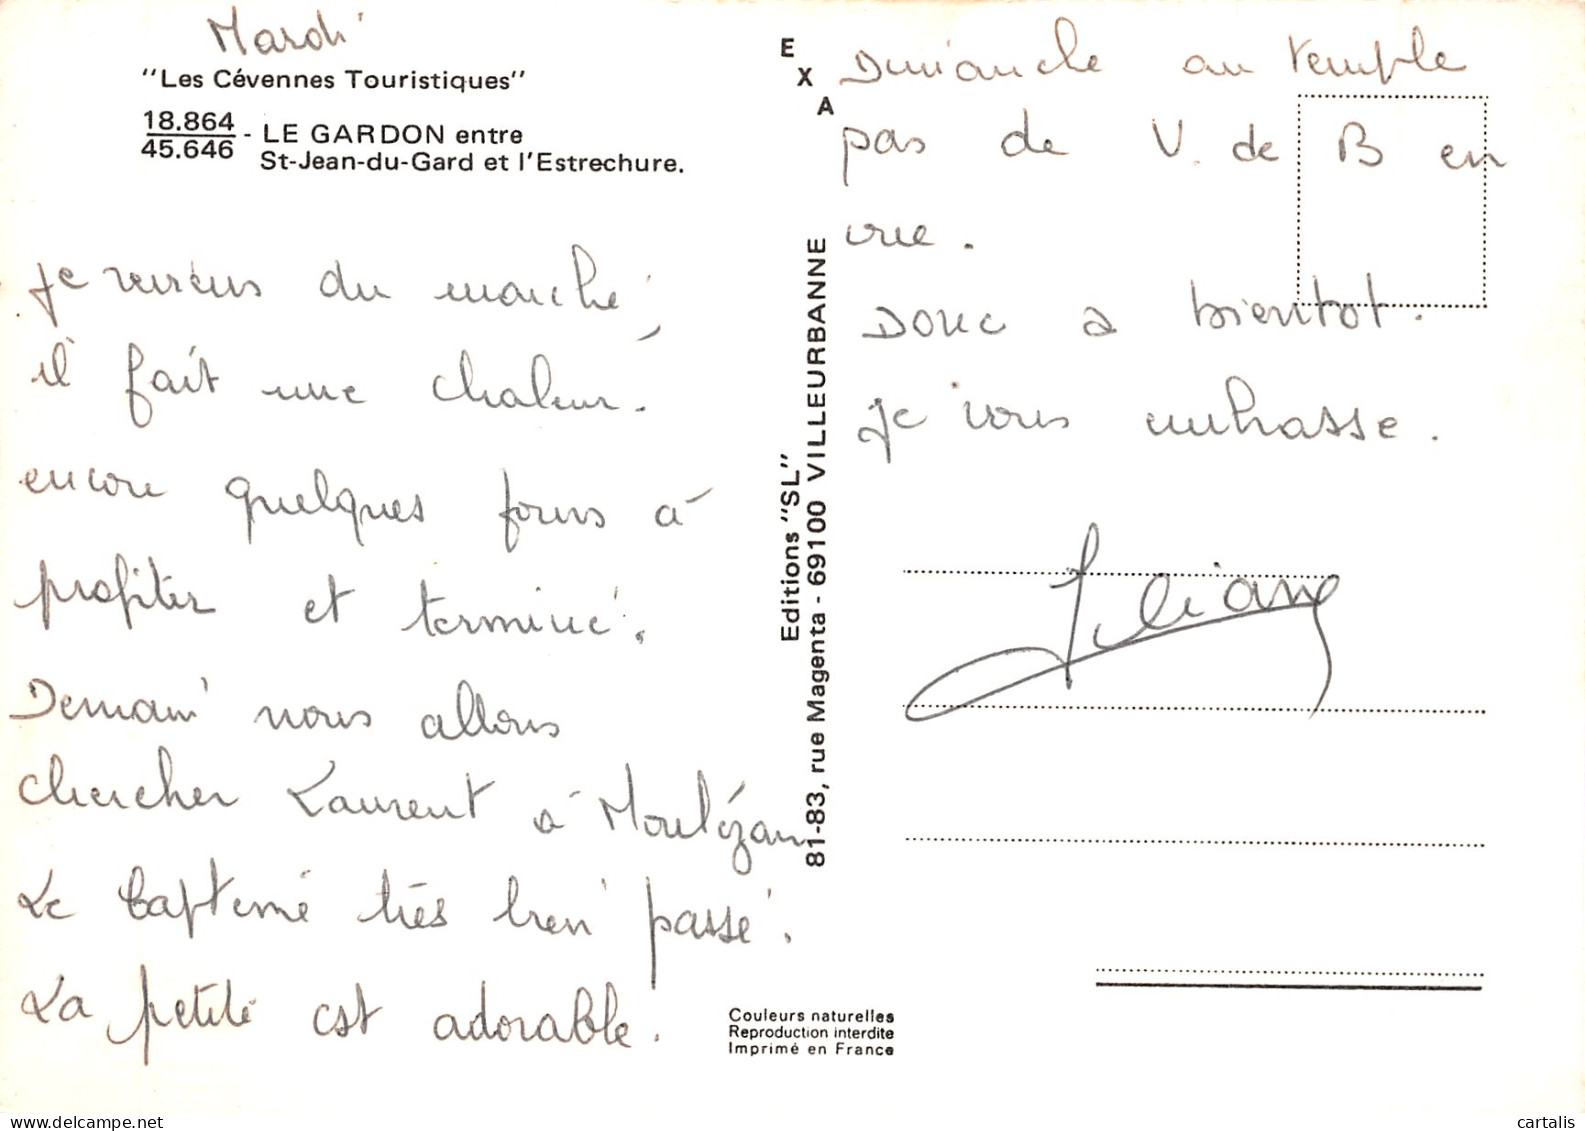 Mardi
"Les Cévennes Touristiques"
18.864
45.646 - LE GARDON entre
St-Jean-du-Gard et l'Estrechure.
Je reviens du marché,
il fait une chaleur.
encore quelques jours à
profiter et terminé.
Demain nous allons
chercher Laurent à Moulézan
Le baptême très bien passé.
La petite est adorable.
E
X
A
Editions "SL"
81-83, rue Magenta - 69100 VILLEURBANNE
Dimanche au temple
pas de V. de B en
vue.
Donc a bientot.
Je vous embrasse.
Liliane
Couleurs naturelles
Reproduction interdite
Imprimé en France
cartalis
delcampe.net